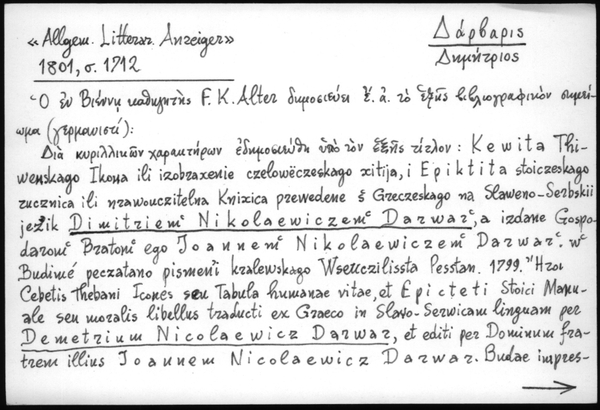 «Allgem. Litterar. Anzeiger»
1801, σ. 1712
Δάρβαρις
Δημήτριος
Ὁ ἐν Βιέννῃ καθηγητὴς F. K. Alter δημοσιεύει ἐ. ἀ. τὸ ἑξῆς βιβλιογραφικὸν σημεί-
ωμα (γερμανιστί):
Διὰ κυριλλικῶν χαρακτήρων ἐδημοσιεύθη ὑπὸ τὸν ἑξῆς τίτλον: Kewita Thi-
wenskago Ikona ili izobraxenie czelowěczeskago xitija, i Epiktita stoiczeskago
rucznica ili nrawouczitelna Knixica prewedene š Greczeskago na Slaweno-Serbskii
jezik Dimitriemᶜ Nikolaewiczemᶜ Darwarᶜ, a izdane Gospo-
daromᶜ Bratomᶜ ego Joannemᶜ Nikolaewiczemᶜ Darwarᶜ. wᶜ
Budimě peczatano pismeny kralewskago Wseuczilissta Pesstan. 1799. Ἤτοι
Cebetis Thebani Icones seu Tabula humanae vitae, et Epicteti Stoici Manu-
ale seu moralis libellus traducti ex Graeco in Slavo-Serwicam linguam per
Demetrium Nicolaewicz Darwar, et editi per Dominum fra-
trem illius Joannem Nicolaewicz Darwar. Budae impres-